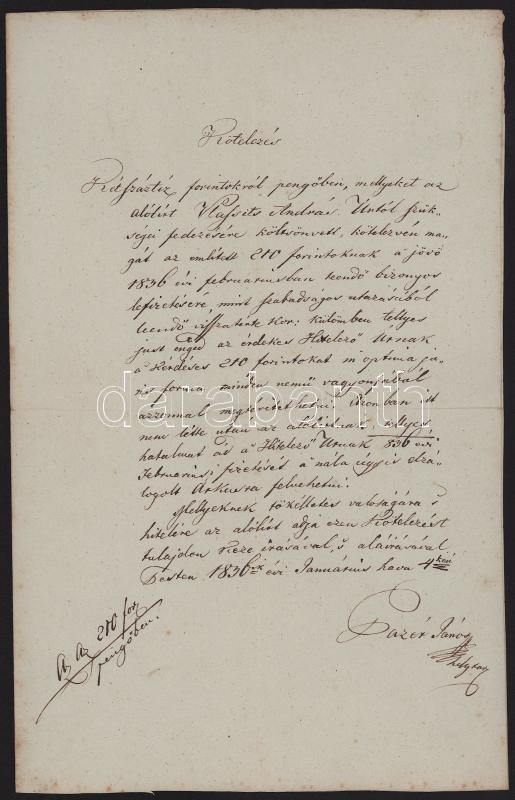 Kötelezés
Kétszáztiz forintokról pengőben, mellyeket az
alólirt Klassits András Úrtól szük-
ségei fedezésére költsönvett, kötelezvén ma-
gát az emlitett 210 forintoknak a jövő
1836 évi februariusban teendő bizonyos
lefizetésére, mint szabadságos utazásából
leendő visszatérte kor: külömben tellyes
just enged az érdekes Hitelező Úrnak
a kérdéses 210 forintokat in optima ju-
ris forma minden nemű vagyonjából
azonnal megvétethetni. Azonban itt
nem léte után az alólirtnak, tellyes
hatalmat ád a Hitelező Úrnak 836 évi
Februariusi fizetését a nála úgy is elzá-
logolt Árkusra felvehetni.
Mellyeknek tökélletes valoságára s
hitelére az alólirt adja ezen Kötelezést
tulajdon keze irásával, s aláirásával
Pesten 1836ik évi Januarius hava 4kén
Pazér János
Az Az 210 for
pengőben.
darabanth